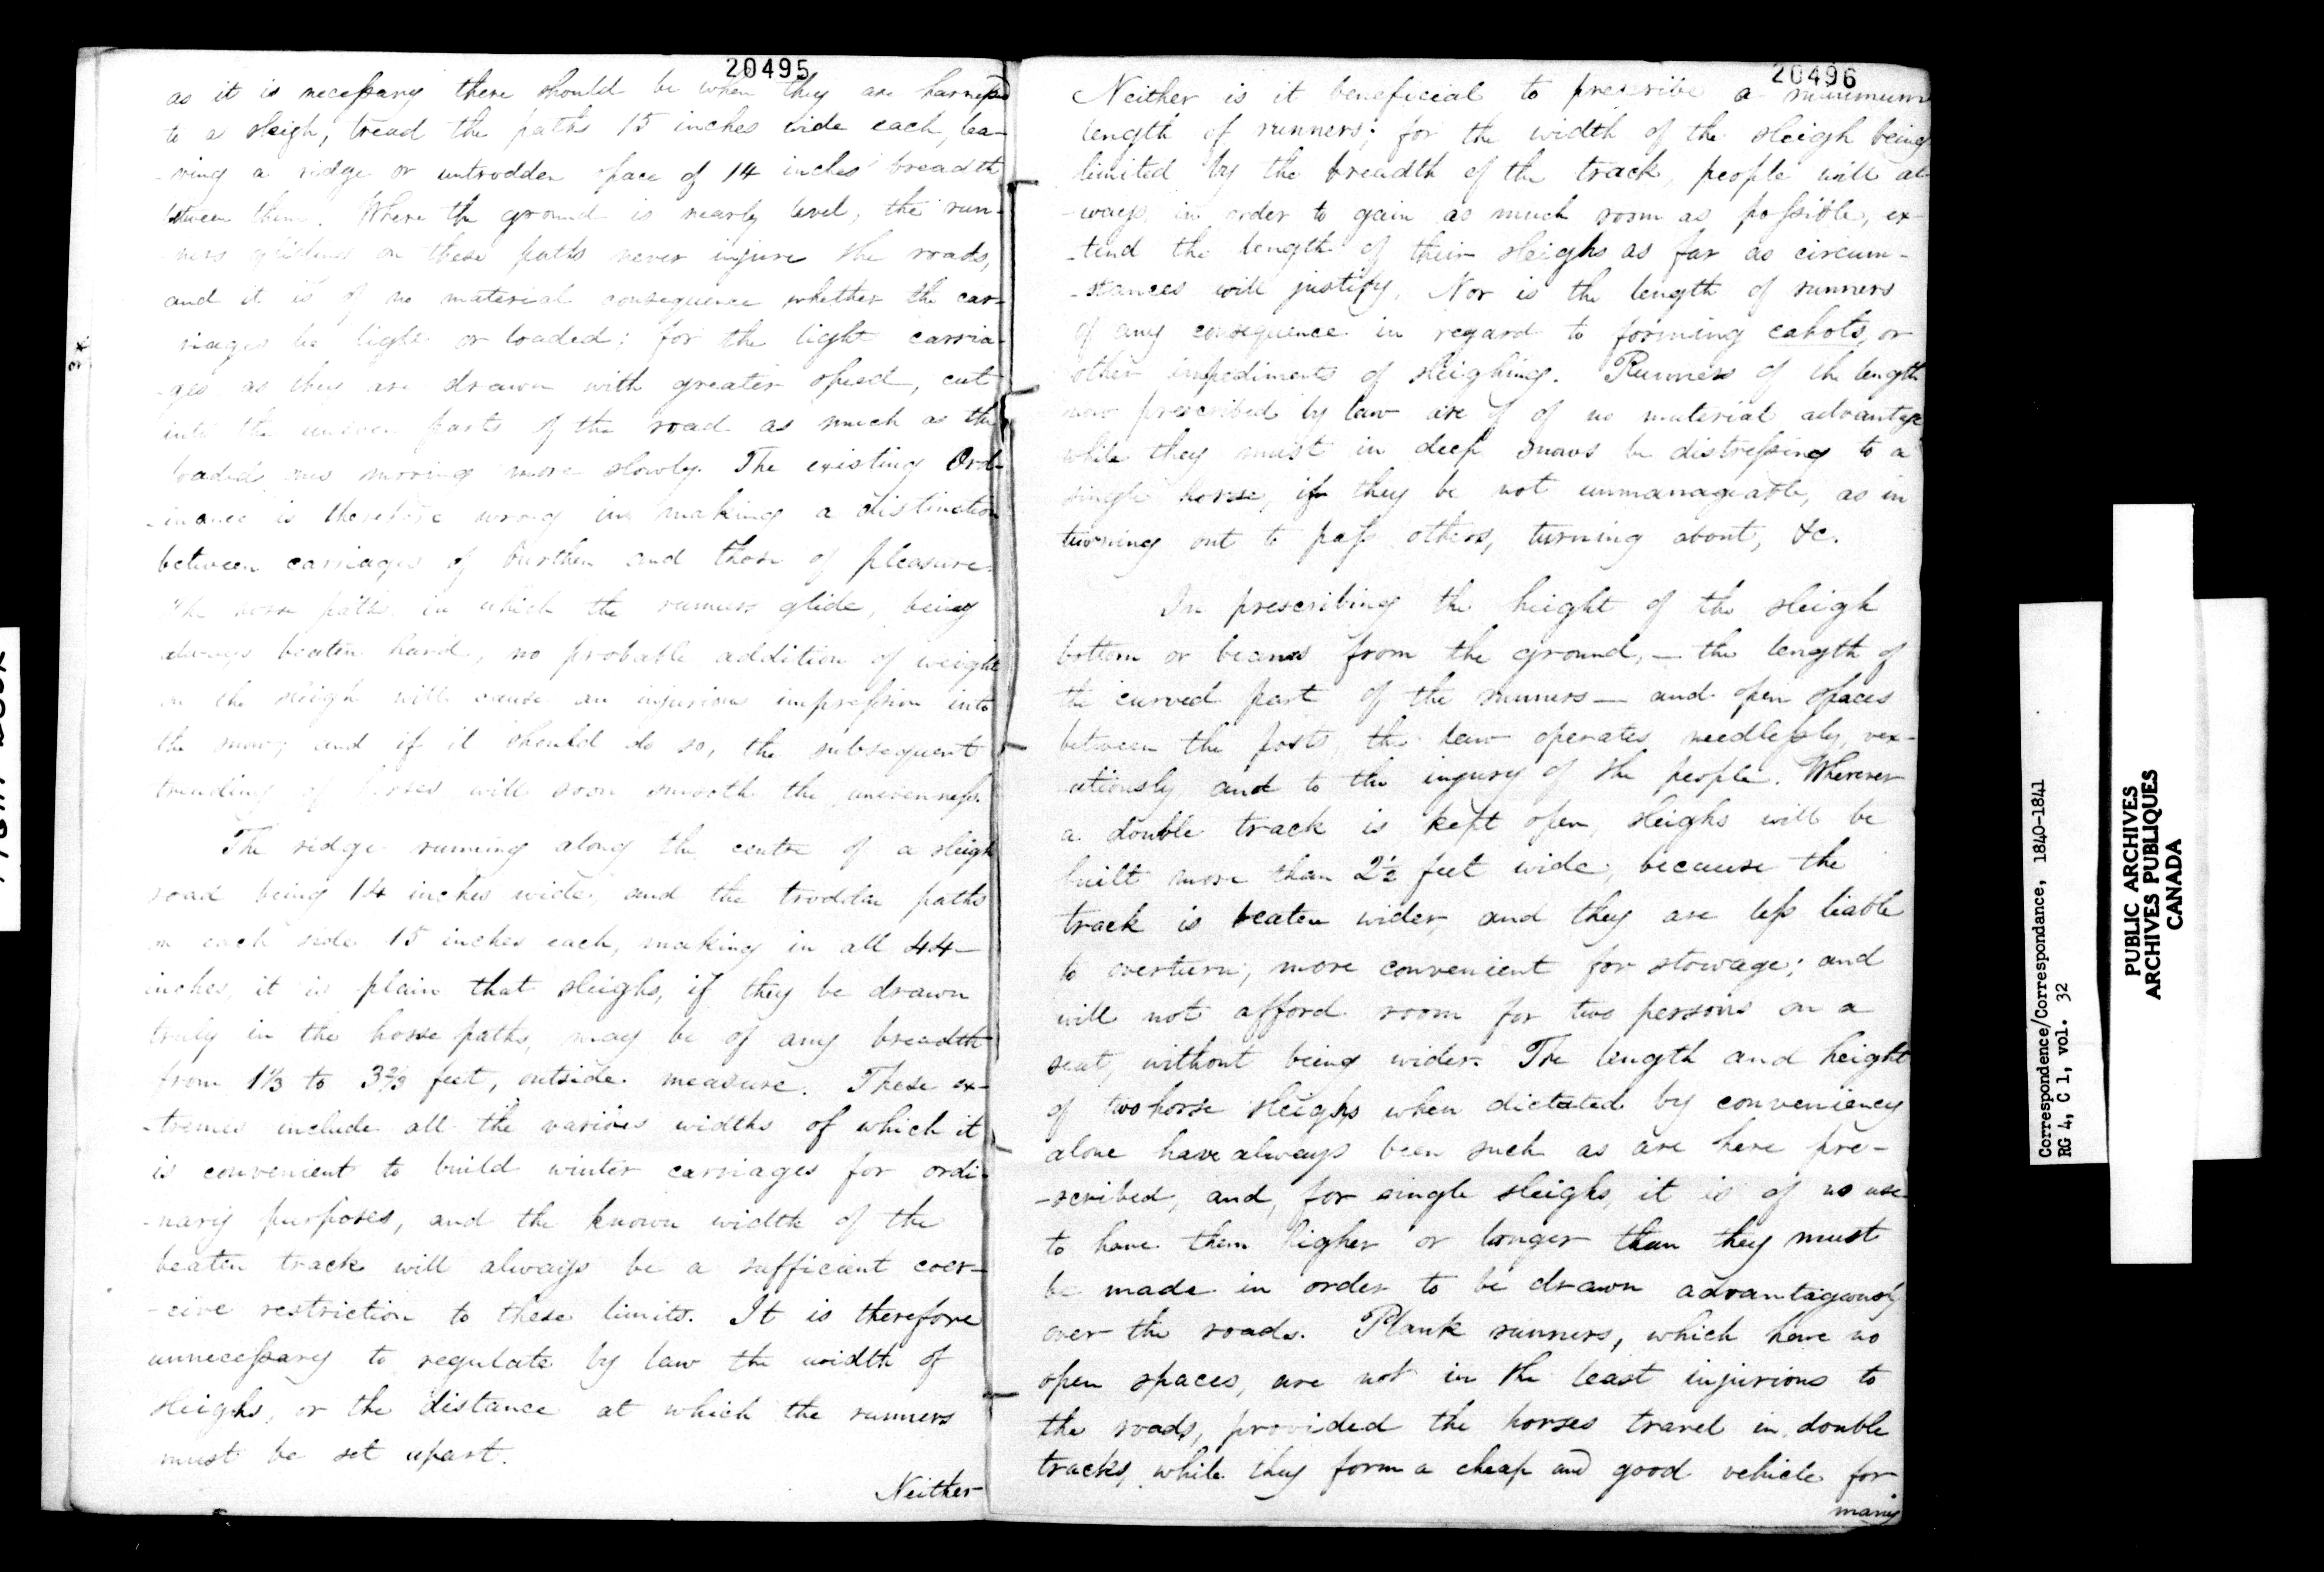 20495
as it is necessary there should be when they are harnessed
to a sleigh, tread the paths 15 inches wide each, lea-
-ving a ridge or untrodden space of 14 inches breadth
between them. Where the ground is nearly level, the run-
-ners gliding on these paths never injure the roads,
and it is of no material consequence whether the car-
riages be light or loaded; for the light carria-
-ges as they are drawn with greater speed, cut
into the uneven parts of the road as much as the
loaded ones moving more slowly. The existing Ord-
-inance is therefore wrong in making a distinction
between carriages of burthen and those of pleasure.
The horse paths in which the runners glide, being
always beaten hard, no probable addition of weight
on the sleigh will cause an injurious impression into
the snow; and if it should do so, the subsequent
treading of horses will soon smooth the unevenness.
The ridge running along the centre of a sleigh
road being 14 inches wide, and the trodden paths
on each side 15 inches each, making in all 44
inches, it is plain that sleighs, if they be drawn
truly in the horse paths, may be of any breadth
from 1⅓ to 3⅔ feet, outside measure. These ex-
-tremes include all the various widths of which it
is convenient to build winter carriages for ordi-
-nary purposes, and the known width of the
beaten track will always be a sufficient coer-
-cive restriction to these limits. It is therefore
unnecessary to regulate by law the width of
sleighs, or the distance at which the runners
must be set apart.
Neither
20496
Neither is it beneficial to prescribe a minimum
length of runners; for the width of the sleigh being
limited by the breadth of the track, people will al-
-ways, in order to gain as much room as possible, ex-
-tend the length of their sleighs as far as circum-
-stances will justify. Nor is the length of runners
of any consequence in regard to forming cahots, or
other impediments of sleighing. Runners of the length
now prescribed by law are of of no material advantage
while they must in deep snows be distressing to a
single horse, if they be not unmanageable, as in
turning out to pass others, turning about, &c.
In prescribing the height of the sleigh
bottom or beams from the ground, — the length of
the curved part of the runners — and open spaces
between the posts, the law operates needlessly, vex-
-atiously and to the injury of the people. Wherever
a double track is kept open, sleighs will be
built more than 2½ feet wide, because the
track is beaten wider, and they are less liable
to overturn; more convenient for stowage; and
will not afford room for two persons on a
seat, without being wider. The length and height
of two horse sleighs when dictated by conveniency
alone have always been such as are here pre-
-scribed, and, for single sleighs, it is of no use
to have them higher or longer than they must
be made in order to be drawn advantageously
over the roads. Plank runners, which have no
open spaces, are not in the least injurious to
the roads, provided the horses travel in double
tracks, while they form a cheap and good vehicle for
many
Correspondence/Correspondance, 1840-1841
RG 4, C 1, vol. 32
PUBLIC ARCHIVES
ARCHIVES PUBLIQUES
CANADA